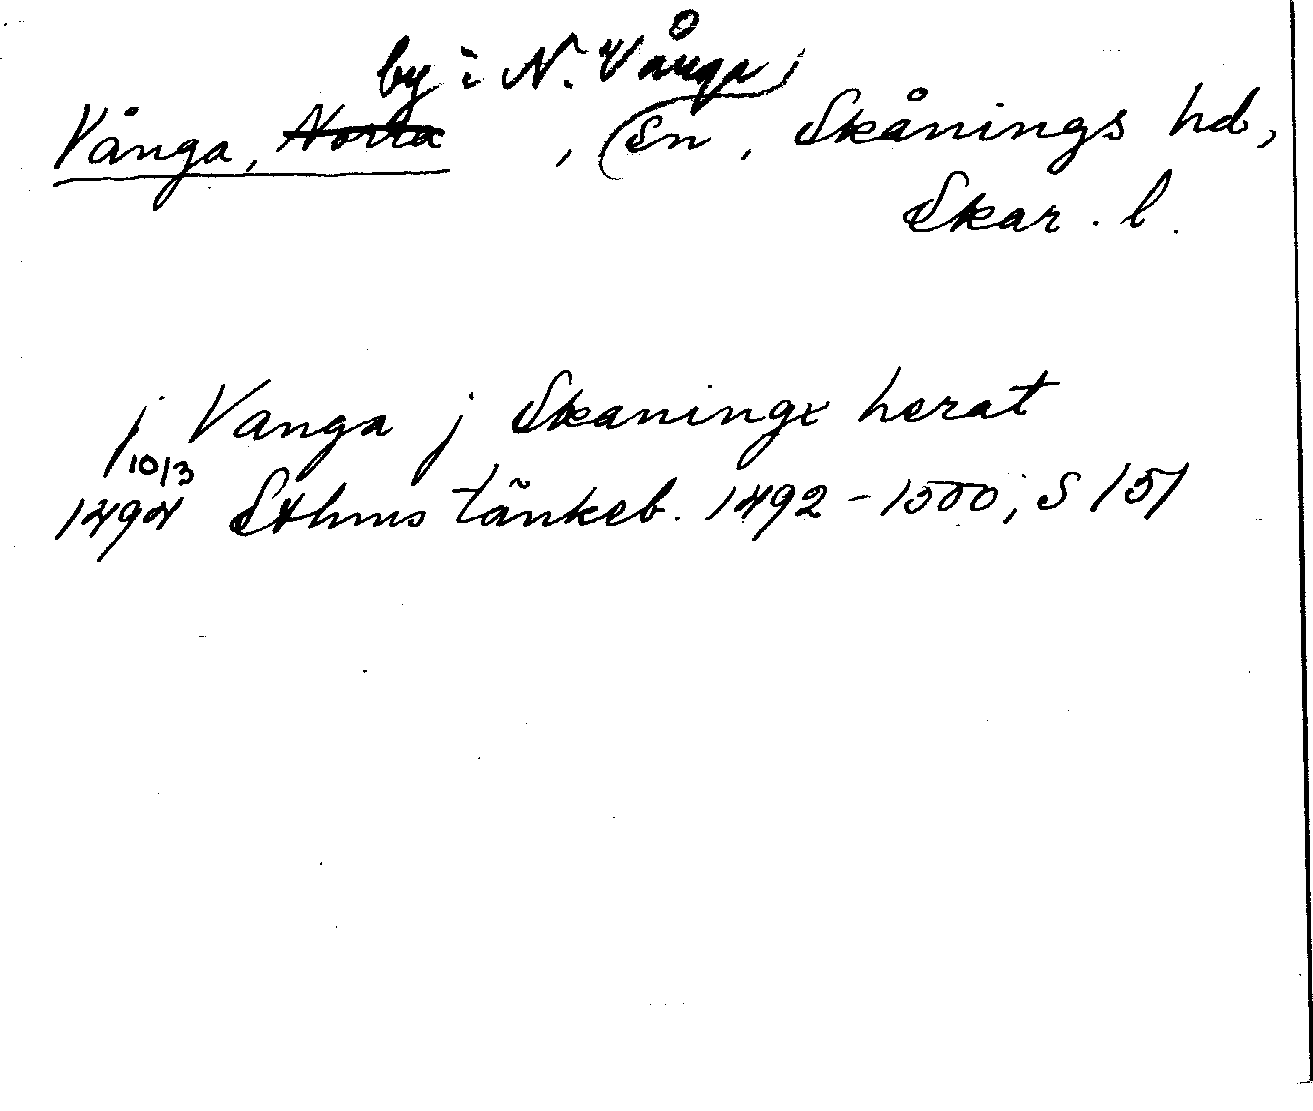 by i N. Vånga
Vånga, Norra, Sn, Skånings hd,
Skar. l.
j Vanga j Skaningx herat
10/3
1494 Sthms tänkeb. 1492-1500, S 151